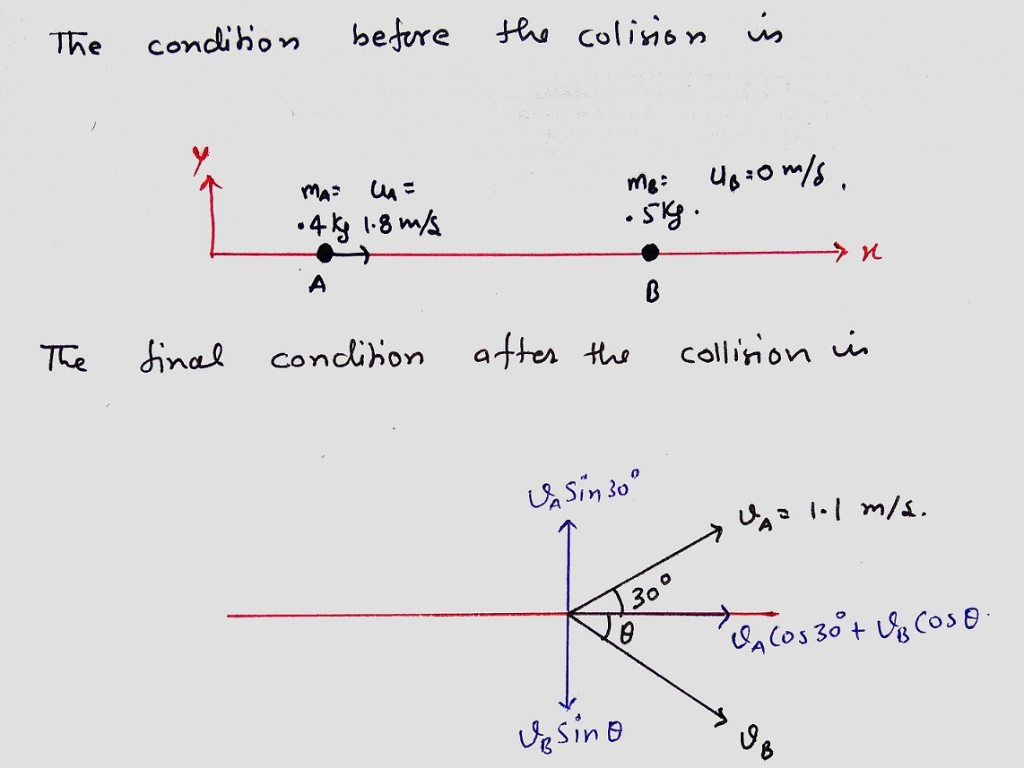 The condition before the colision is
y
mA= uA= mB: uB=0 m/s.
.4 kg 1.8 m/s .5 kg.
x
A B
The final condition after the collision is
vA Sin 30°
vA = 1.1 m/s.
30°
θ
vA Cos 30° + vB Cos θ.
vB Sin θ
vB